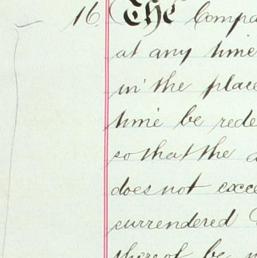 16 The Compa
at any time
in the place
time be rede
so that the a
does not exce
surrendered
thereof be